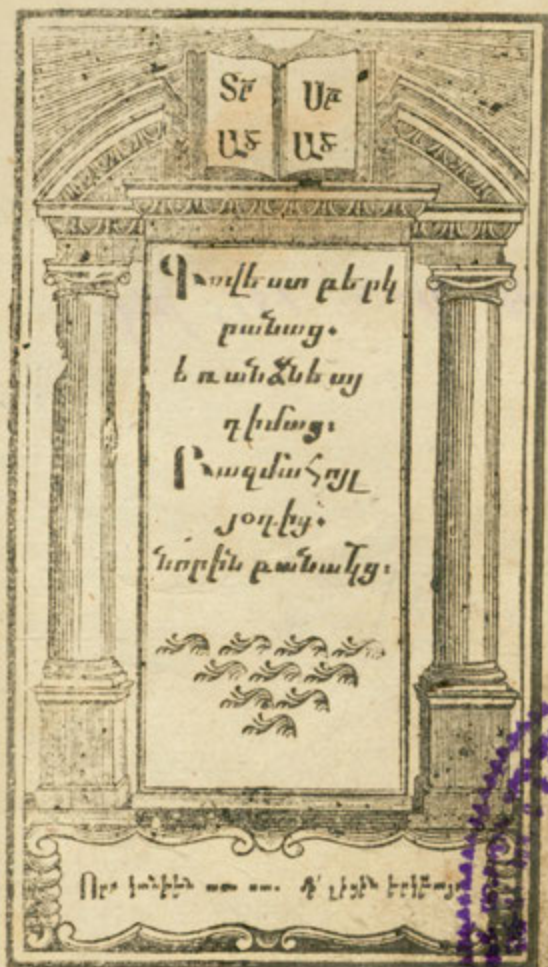 Տր Սբ
Ած Ած
Գովեստ բերկ
րանաց.
եռանձնեայ
դիմաց։
Բազմահոյլ
յօդից.
նորին բանակց։
մի՛ լիցին